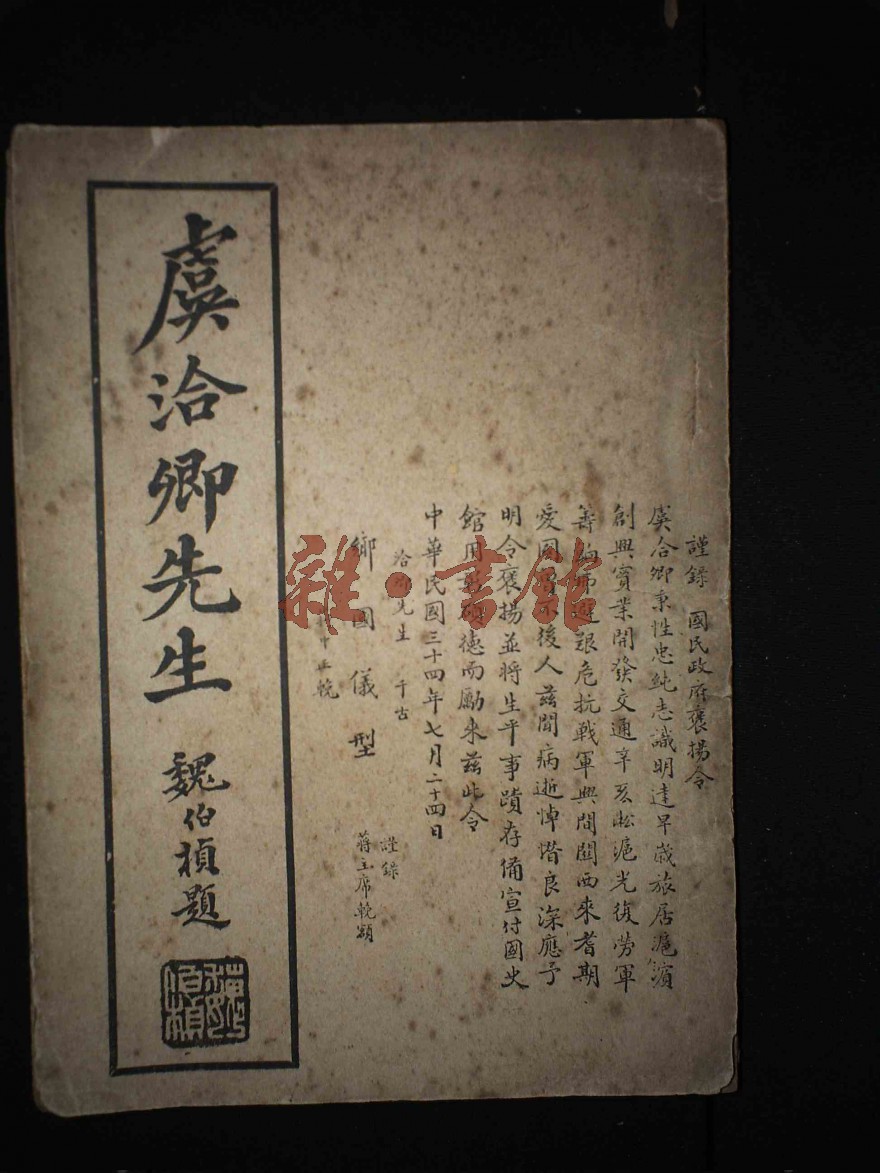 謹錄 國民政府褒揚令
虞洽卿秉性忠純志識明達早歲旅居滬濱
創興實業開發交通辛亥淞滬光復勞軍
籌艱危抗戰軍興間關西來耆期
愛國後人茲聞病逝悼惜良深應予
明令褒揚並將生平事蹟存備宣付國史
館用德而勵來茲此令
中華民國三十四年七月二十四日
謹錄
蔣主席輓額
洽卿先生 千古
鄉國儀型
中正輓
虞洽卿先生
魏伯楨題
魏伯楨
雜·書館